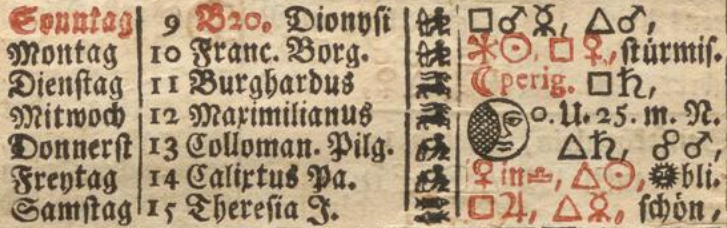 Sonntag 9 B20. Dionysi □♂☿, △♂,
Montag 10 Franc. Borg. ⚹☉, □♀, stürmis.
Dienstag 11 Burghardus ☾perig. □♄,
Mitwoch 12 Maximilianus 0. U. 25. m. N.
Donnerst 13 Colloman. Pilg. △♄, ☍♂,
Freytag 14 Calixtus Pa. ♀in♎, △☉, bli.
Samstag 15 Theresia J. □♃, △☿, schön,